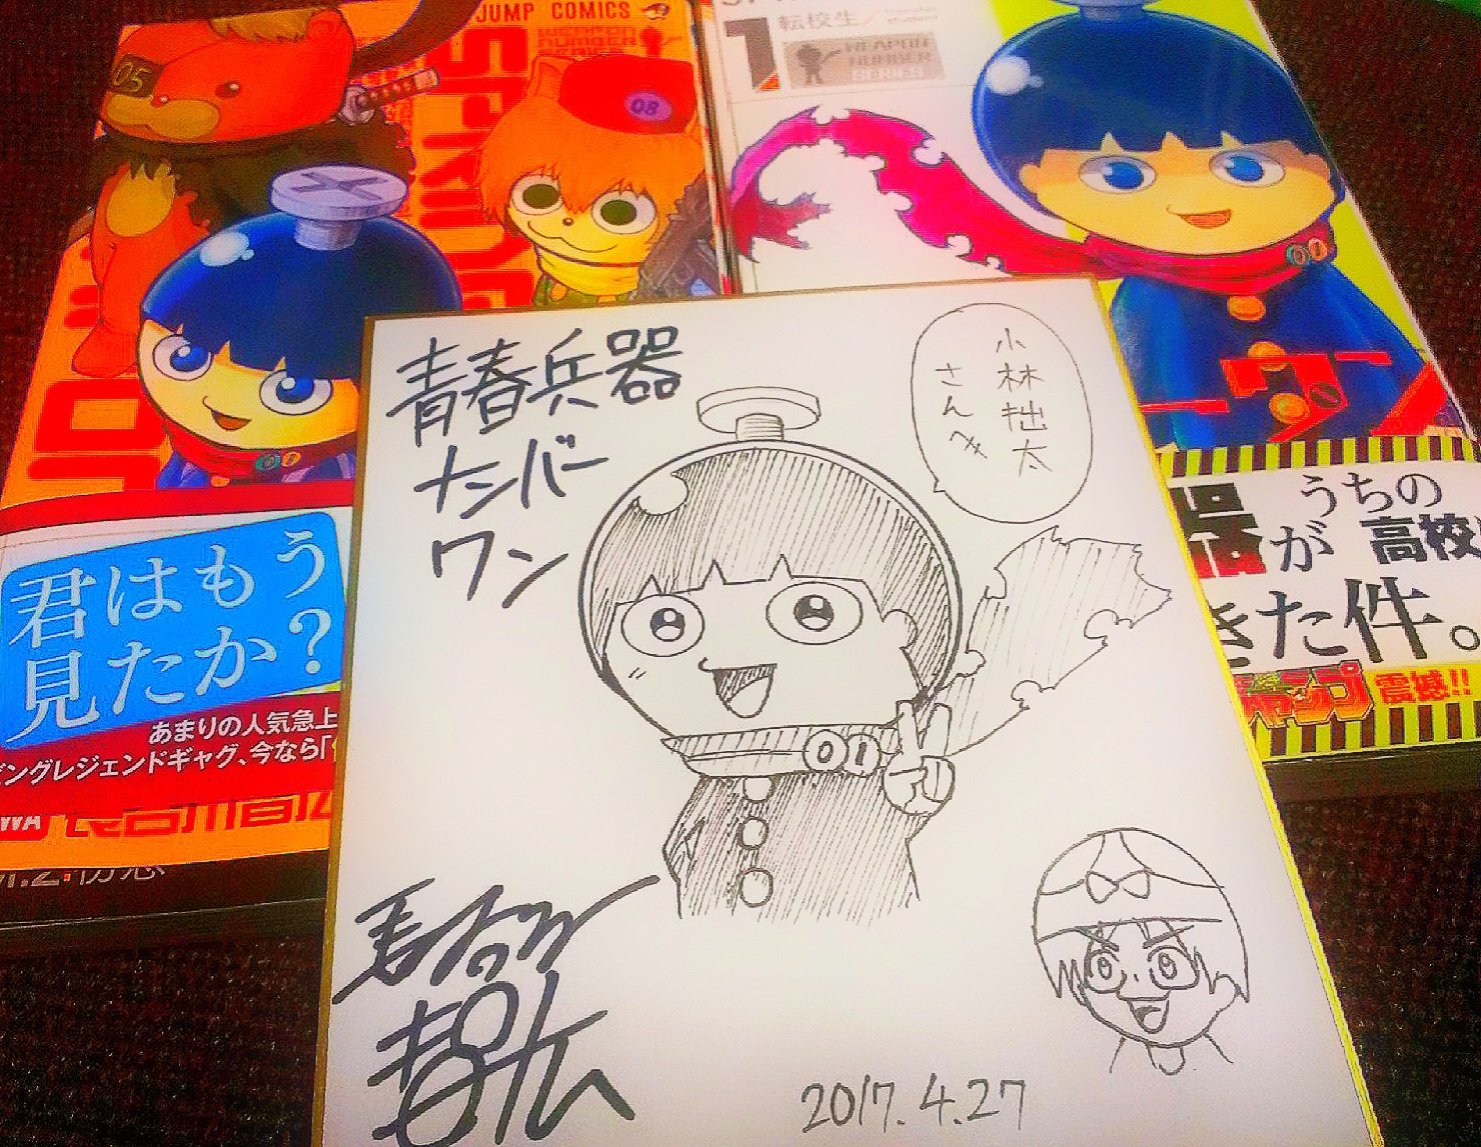 JUMP COMICS
05
08
SPRING
WEAPON
NUMBER
1
転校生
WEAPON
NUMBER
SERIES
01
01
青春兵器
ナンバー
ワン
小林拙太
さんへ
01
君はもう
見たか?
あまりの人気急上
ングレジェンドギャグ、今なら「
WA
うちの
が 高校
きた件。
ジャンプ 震撼!!
2017.4.27